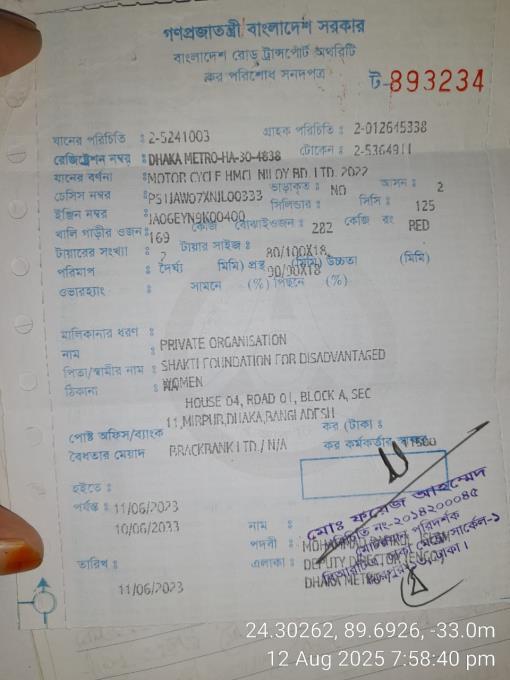 গণপ্রজাতন্ত্রী বাংলাদেশ সরকার
বাংলাদেশ রোড ট্রান্সপোর্ট অথরিটি
কর পরিশোধ সনদপত্র
ট-893234
যানের পরিচিতি : 2-5241003 গ্রাহক পরিচিতি : 2-012645338
রেজিষ্ট্রেশন নম্বর : DHAKA METRO-HA-30-4838 টোকেন : 2-5364911
যানের বর্ণনা : MOTOR CYCLE HMCL NILOY BD. LTD. 2022
চেসিস নম্বর : ভাড়াকৃত : NO আসন : 2
ইঞ্জিন নম্বর : সিলিন্ডার : সিসি : 125
খালি গাড়ীর ওজন : 169 কেজি বোঝাই ওজন : 282 কেজি রং RED
টায়ারের সংখ্যা : 2 টায়ার সাইজ : 80/100X18,
পরিমাপ : দৈর্ঘ্য মিমি) প্রস্থ (মিমি) উচ্চতা (মিমি)
90/90X18
ওভারহ্যাং : সামনে (%) পিছনে (%)
মালিকানার ধরণ : PRIVATE ORGANISATION
নাম : SHAKTI FOUNDATION FOR DISADVANTAGED
WOMEN
পিতা/স্বামীর নাম : NA
ঠিকানা : HOUSE 04, ROAD 01, BLOCK A, SEC
11,MIRPUR,DHAKA,BANGLADESH
পোষ্ট অফিস/ব্যাংক : BRACKBANK LTD./ N/A কর (টাকা :
বৈধতার মেয়াদ কর কর্মকর্তার
হইতে : 11/06/2023
পর্যন্ত : 10/06/2033
নাম :
পদবী : DEPUTY DIRECTOR
এলাকা : DHAKA METRO
তারিখ : 11/06/2023
মোঃ ফয়েজ আহম্মেদ
পরিচিতি নং-২০১৪২০০০৪৫
মোটরযান পরিদর্শক
24.30262, 89.6926, -33.0m
12 Aug 2025 7:58:40 pm